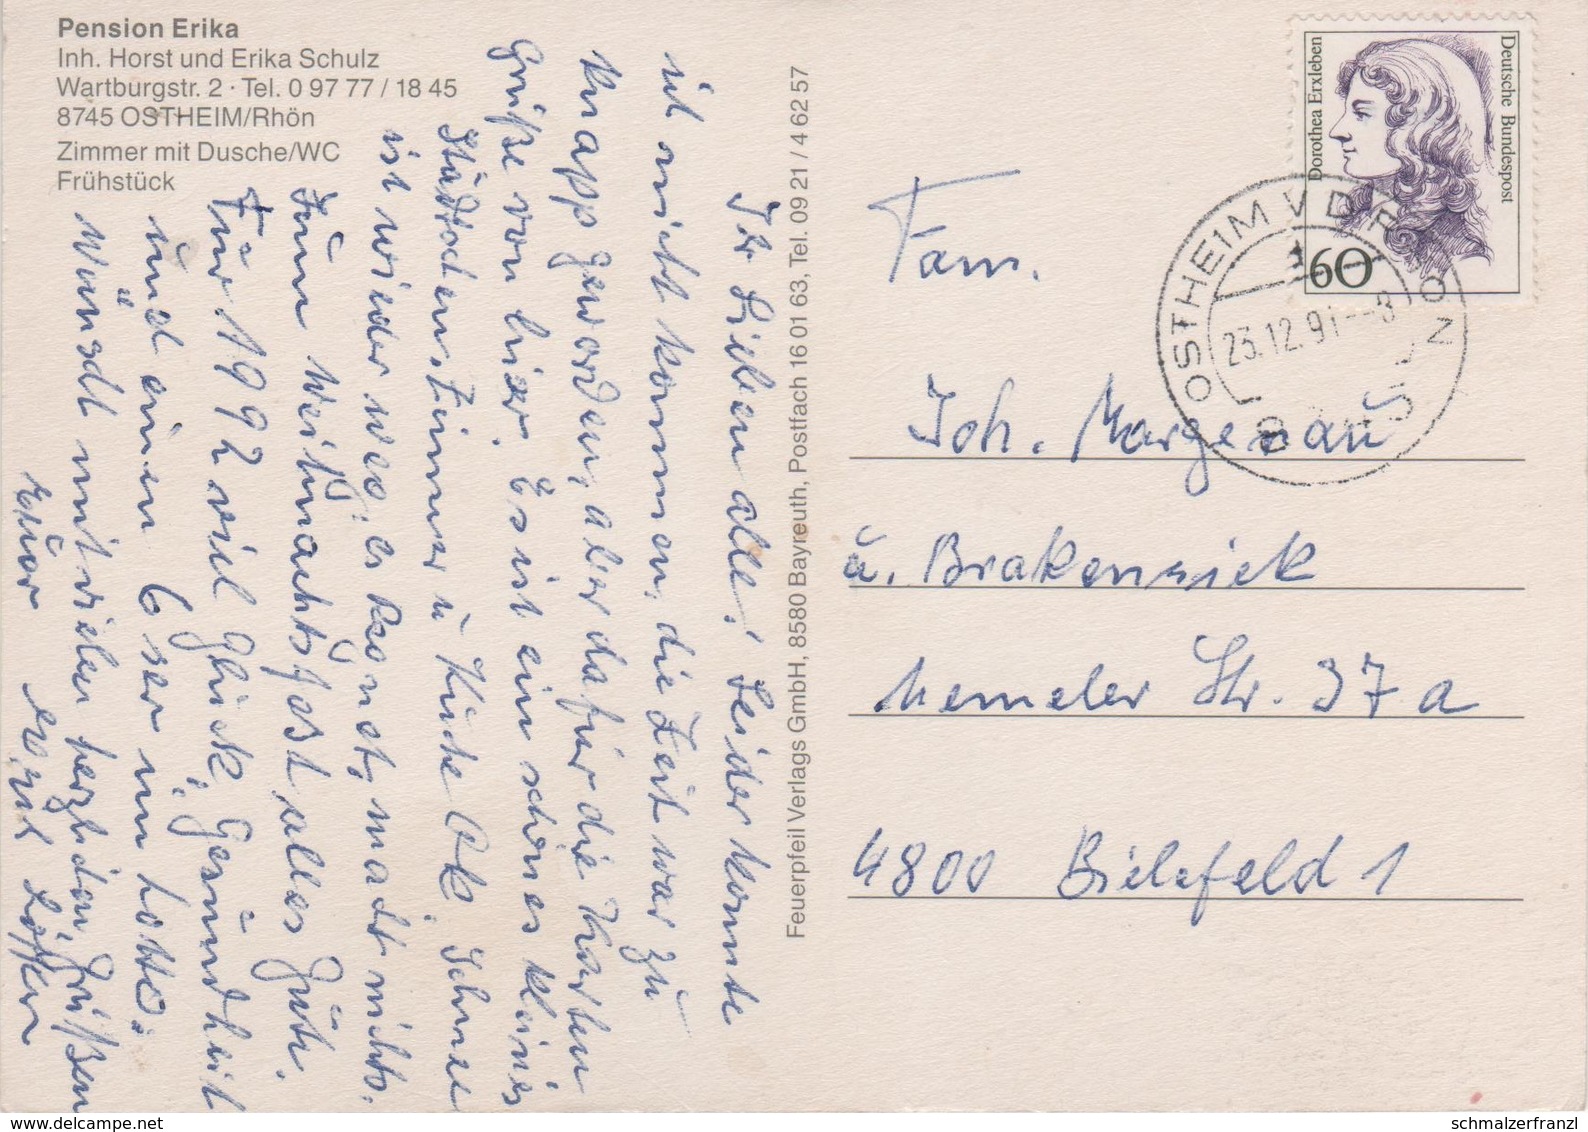 Pension Erika
Inh. Horst und Erika Schulz
Wartburgstr. 2 · Tel. 0 97 77 / 18 45
8745 OSTHEIM/Rhön
Zimmer mit Dusche/WC
Frühstück
Ihr Lieben alle! Leider konnte
ich nicht kommen, die Zeit war zu
knapp geworden, aber dafür die Karten
Grüße von hier. Es ist ein schönes kleines
Städtchen, Zimmer u Küche Ok. Schnee
ist wieder weg, es regnet, macht nichts.
Zum Weihnachtsfest alles Gute.
Für 1992 viel Glück, Gesundheit
und einen 6ser im Lotto.
Wünscht mit vielen herzlichen Grüßen
Euer
Feuerpfeil Verlags GmbH, 8580 Bayreuth, Postfach 16 01 63, Tel. 09 21 / 4 62 57
Dorothea Erxleben
Deutsche Bundespost
60
OSTHEIM V D RHÖN
23.12.91
Fam.
Joh. Margenau
u. Brakensiek
Memeler Str. 37 a
4800 Bielefeld 1
schmalzerfranzl